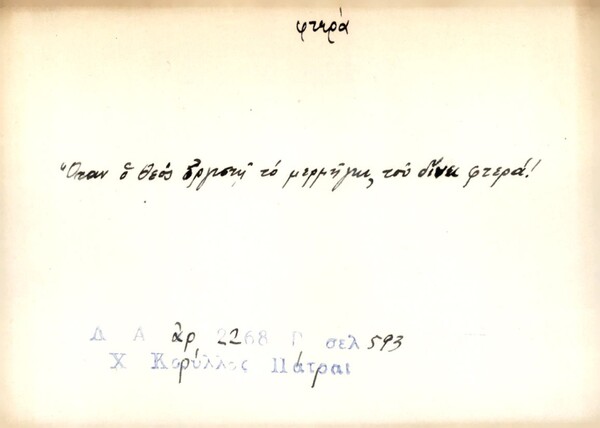 φτερά
Ὅταν ὁ θεός ὀργιστῇ τό μερμῆγκι, τοῦ δίνει φτερά!
Λ Α ἀρ 2268 Γ σελ 593
Χ Κορύλλος Πάτραι